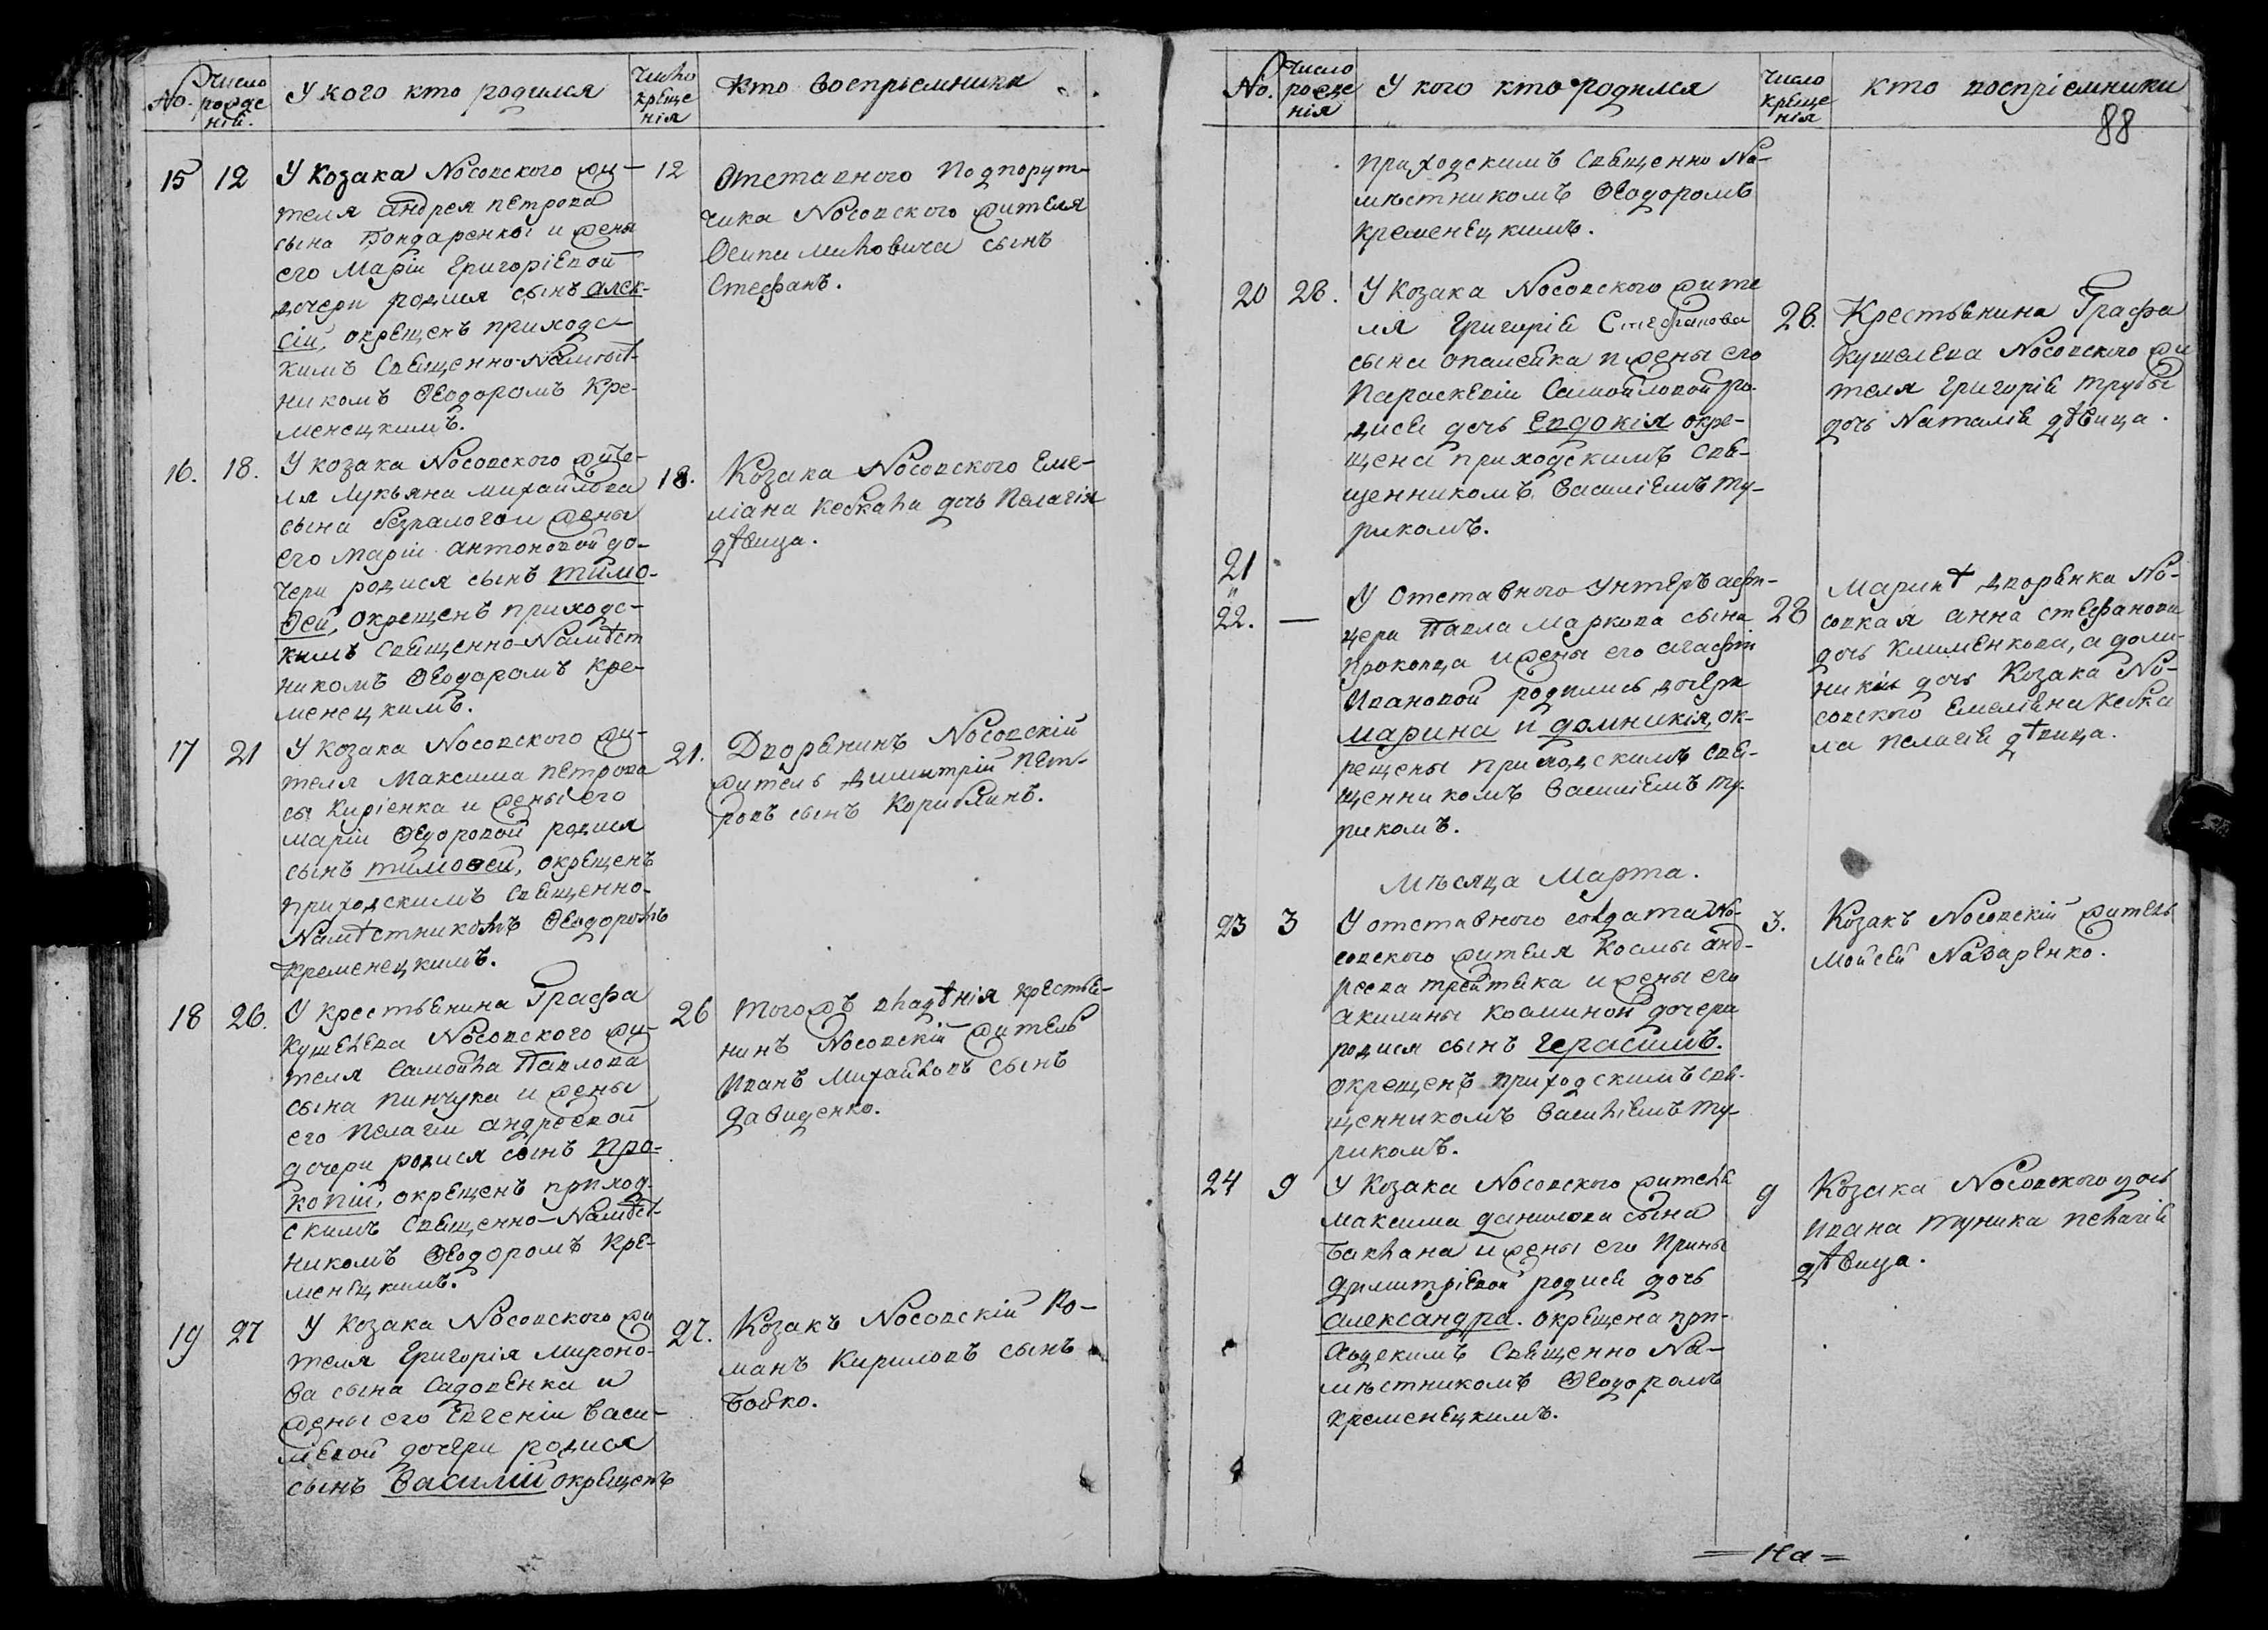 No.
Число рождений.
У кого кто родился
Число крещенія
Кто воспріемники
15 12
У Козака Носовского жи-
теля Андрея Петрова
сына Бондаренка и жены
его Маріи Григоріевой
дочери родися сынъ Алек-
сій, окрещенъ приходс-
кимъ Священно-Намѣст-
никомъ Ѳеодоромъ Кре-
менецкимъ.
12
Отставного Подпорут-
чика Носовского жителя
Осипа Миловича сынъ
Стефанъ.
16. 18.
У козака Носовского жите-
ля Лукьяна Михайлова
сына безпалого и жены
его Маріи Антоновой до-
чери родися сынъ Тимо-
ѳей, окрещенъ приходс-
кимъ Священно-Намѣст
никомъ Ѳеодоромъ Кре-
менецкимъ.
18.
Козака Носовского Еме-
ліана Кевкала дочь Пелагія
дѣвица.
17 21
У козака Носовского жи-
теля Максима Петрова
сы Кирієнка и жены его
Маріи Ѳедоровой родися
сынъ Тимоѳей, окрещенъ
приходскимъ Священно-
Намѣстникомъ Ѳеодоромъ
Кременецкимъ.
21.
Дворянинъ Носовскій
житель Димитрій Пет-
ровъ сынъ
18 26.
У крестьянина Графа
Кушелева Носовского жи-
теля Самойла Павлова
сына Пинчука и жены
его Пелагіи Андреевой
дочери родися сынъ Про-
копій, окрещенъ приход-
скимъ Священно-Намѣст-
никомъ Ѳеодоромъ Кре-
менецкимъ.
26
Тогожъ владѣнія крестья-
нинъ Носовскій житель
Иванъ Михайловъ сынъ
Давиденко.
19 27
У Козака Носовского жи
теля Григорія Мироно-
ва сына Садовенка и
жены его Евгеніи Васи-
ліевой дочери родися
сынъ Василій окрещенъ
27.
Козакъ Носовскій Ро-
манъ Кириловъ сынъ
Бойко.
No.
Число рожденія
У кого кто родился
Число крещенія
кто воспріемники
88
приходскимъ Священно На-
мѣстникомъ Ѳеодоромъ
Кременецкимъ.
20 28.
У Козака Носовского жите
ля Григорія Стефанова
сына и жены его
Параскевіи Самойловой ро-
дися дочь Евдокія окре-
щена приходскимъ Свя-
щенникомъ Василіемъ Ту-
рикомъ.
28.
Крестьянина Графа
Кушелева Носовского жи
теля Григорія Трубы
дочь Наталія дѣвица.
21
"
22. —
У Отставного Унтеръ афи-
цера Павла Маркова сына
Прокопца и жены его Агафіи
Ивановой родились дочери
Марина и Домникія, ок-
рещены приходскимъ Свя-
щенникомъ Василіемъ Ту-
рикомъ.
28
Маринѣ дворянка Но-
совкая Анна Стефанова
дочь Клименкова, а Доми-
никіи дочь Козака Но-
совского Емеліяна Кевка
ла Пелагія дѣвица.
Мѣсяца Марта.
23 3
У отставного солдата Но-
совского жителя Космы Анд-
реева и жены его
Акилины Косминой дочери
родися сынъ Герасимъ.
окрещенъ приходскимъ Свя-
щенникомъ Василіемъ Ту-
рикомъ.
3.
Козакъ Носовскій житель
Мойсей Назаренко.
24 9
У Козака Носовского жителя
Максима Данилова сына
Баклана и жены его Ирины
Димитріевой родися дочь
Александра. окрещена при-
ходскимъ Священно На-
мѣстникомъ Ѳеодоромъ
Кременецкимъ.
9
Козака Носовского дочь
Ивана Туника Пелагія
дѣвица.
= На =